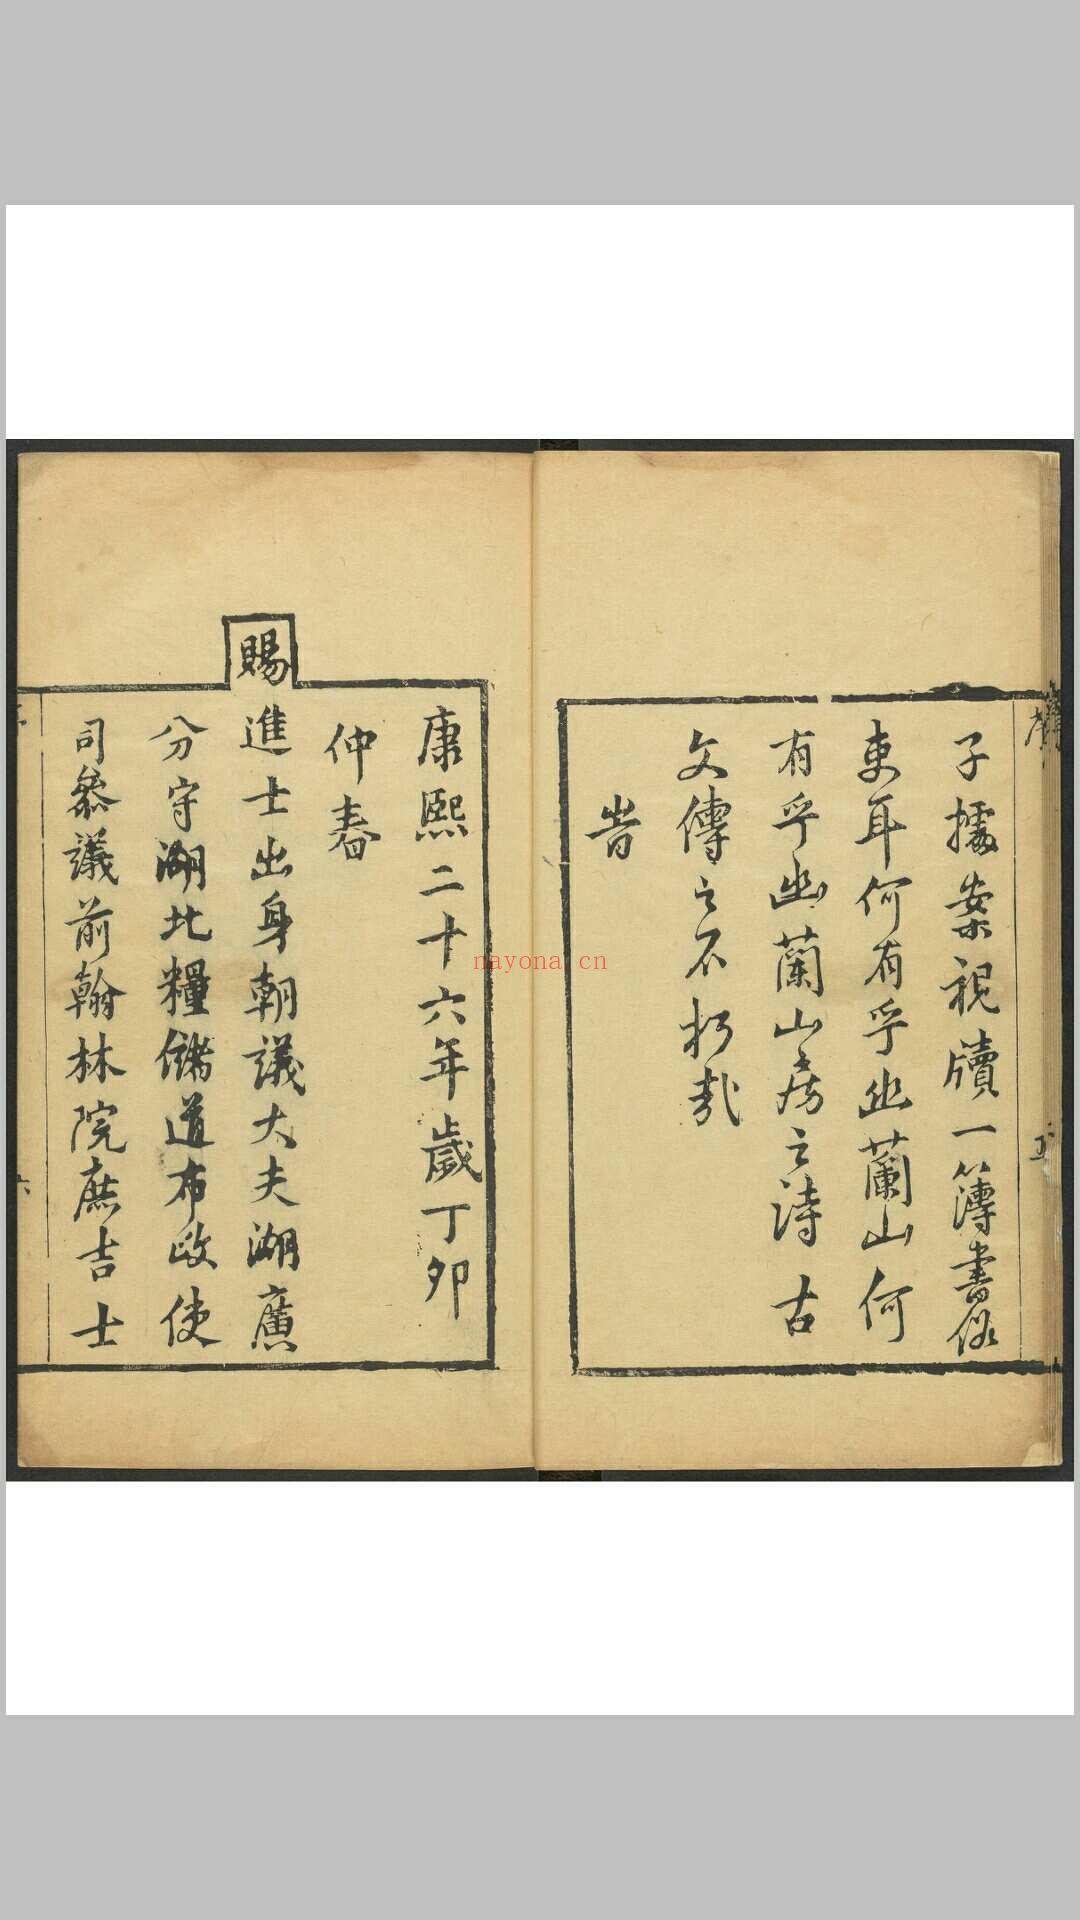 子據案視牘一簿書俗
吏耳何有乎幽蘭山何
有乎幽蘭山房之詩古
文傳之不朽哉
旹
康熙二十六年歲丁卯
仲春
賜進士出身朝議大夫湖廣
分守湖北糧儲道布政使
司叅議前翰林院庶吉士
nayona.cn